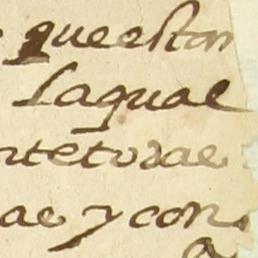 que eston
laqual
ntetodae
ae y con